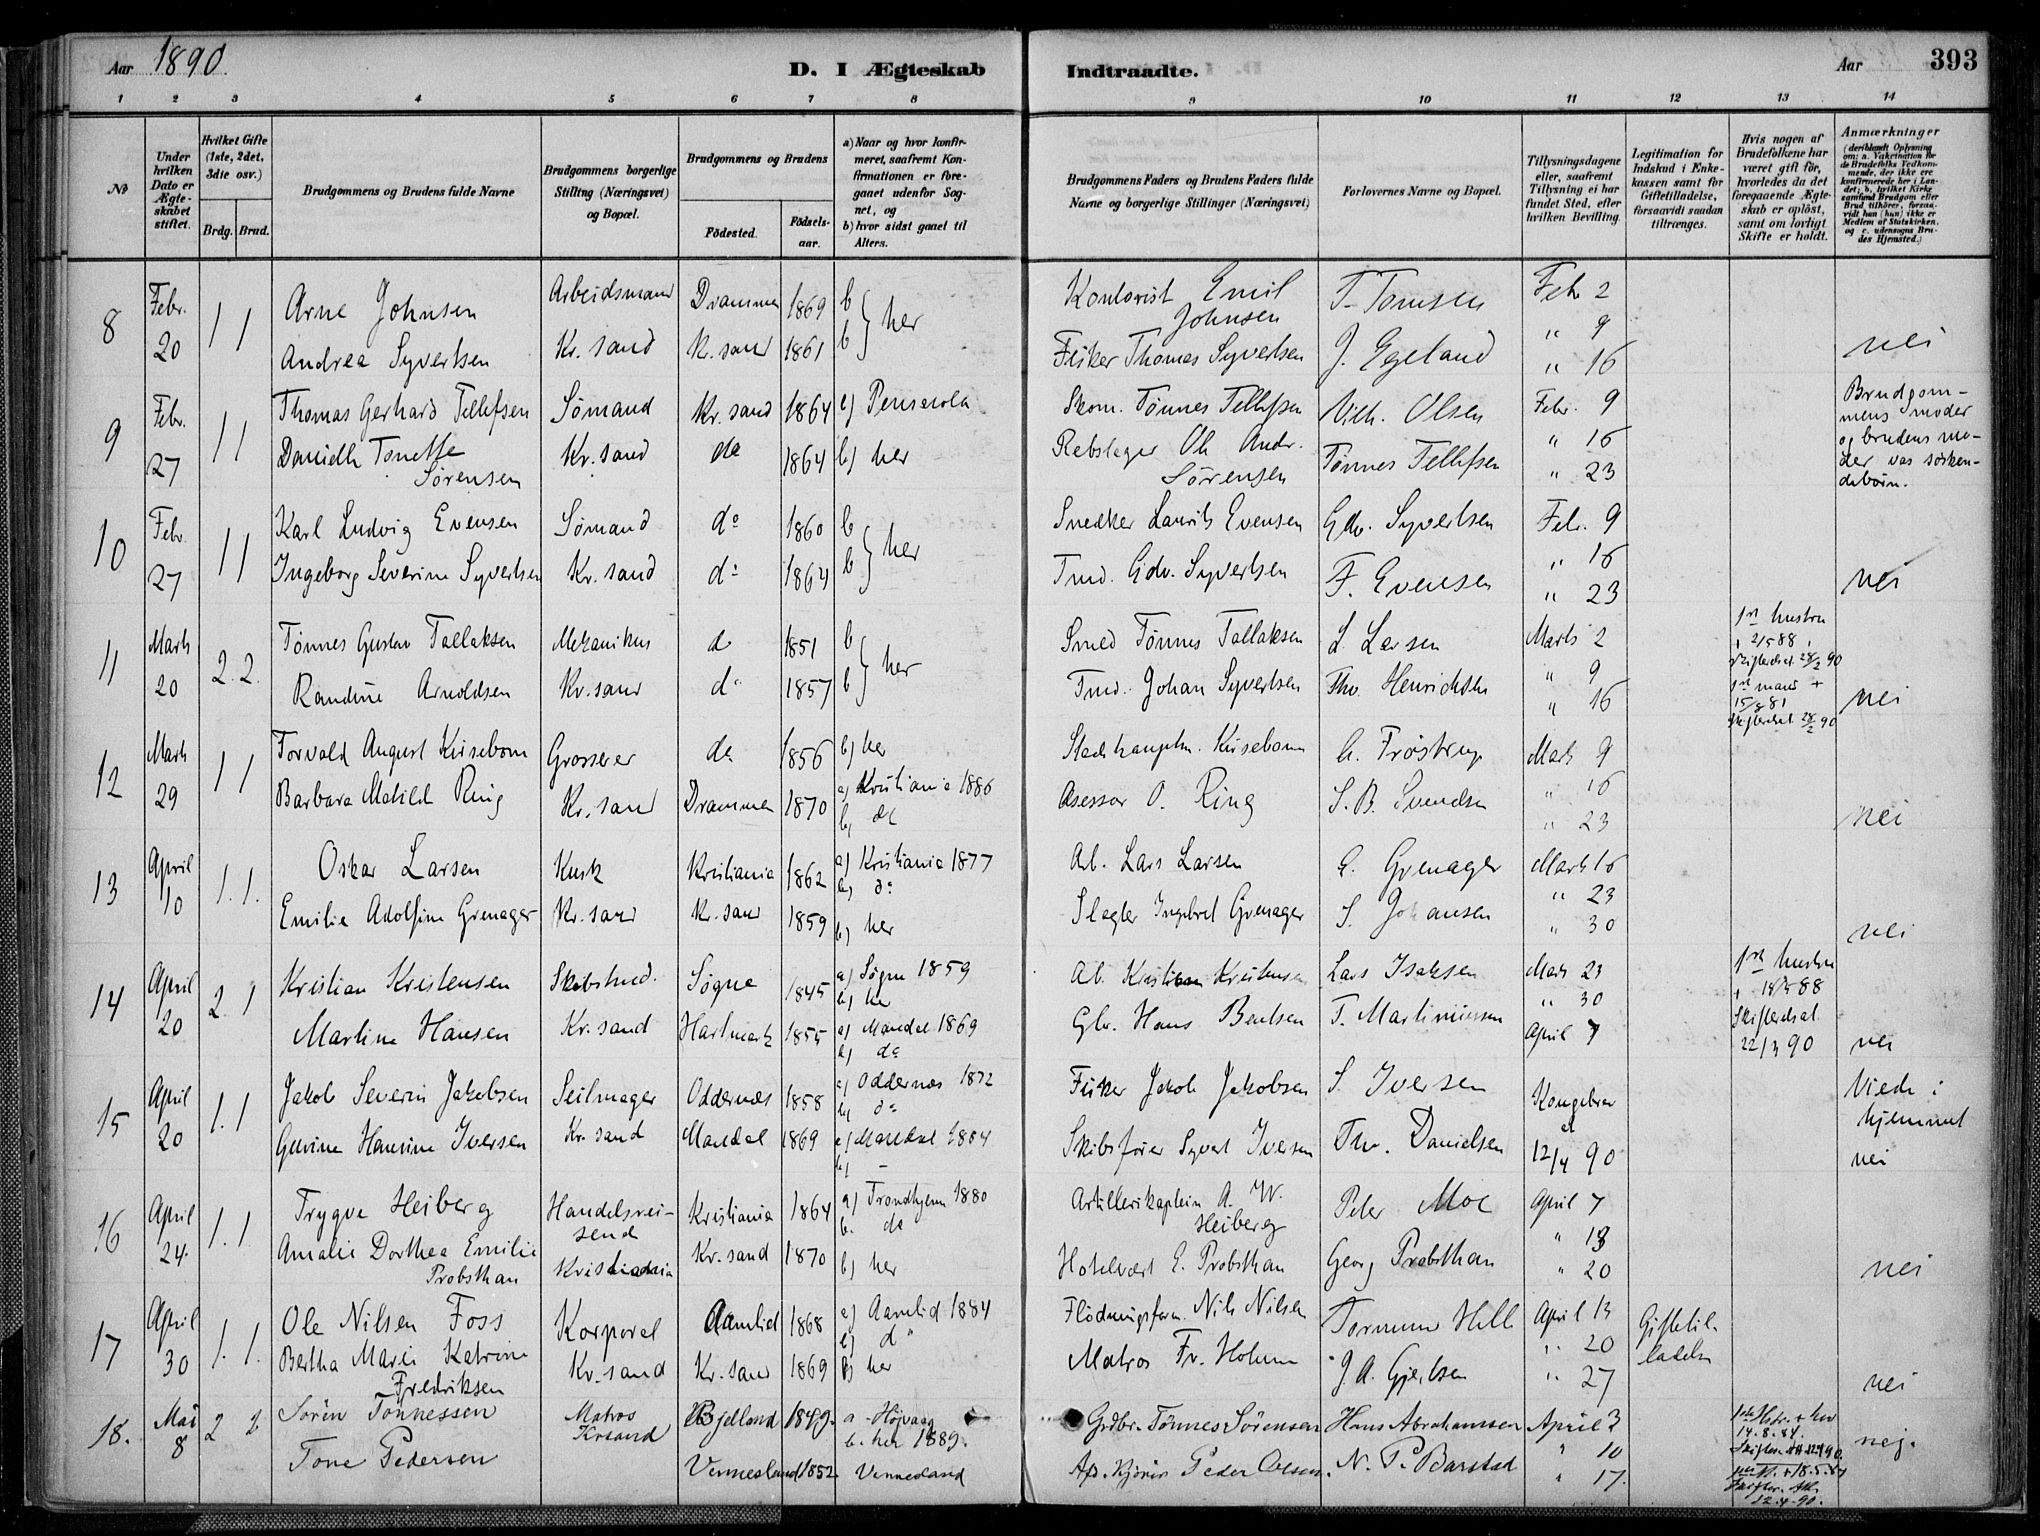 Aar 1890. D. I Ægteskab Indtraadte. Aar 393
1 2 3 4 5 6 7 8 9 10 11 12 13 14
No
Under hvilken Dato er Ægteskabet stiftet.
Hvilket Gifte (1ste, 2det, 3die osv.)
Brdg. Brud.
Brudgommens og Brudens fulde Navne
Brudgommens borgerlige Stilling (Næringsvei) og Bopæl.
Brudgommens og Brudens
Fødested. Fødselsaar.
a) Naar og hvor konfirmeret, saafremt Konfirmationen er foregaaet udenfor Sognet, og
b) hvor sidst gaaet til Alters.
Brudgommens Faders og Brudens Faders fulde Navne og borgerlige Stillinger (Næringsvei)
Forlovernes Navne og Bopæl.
Tillysningsdagene eller, saafremt Tillysning ei har fundet Sted, efter hvilken Bevilling.
Legitimation for Indskud i Enkekassen samt for Giftetilladelse, forsaavidt saadan tiltrænges.
Hvis nogen af Brudefolkene har været gift før, hvorledes da det foregaaende Ægteskab er opløst, samt om lovligt Skifte er holdt.
Anmærkninger (deriblandt Oplysning om: a. Vakcination for de Brudefolks Vedkommende, der ikke ere konfirmerede her i Landet; b. hvilket Kirkesamfund Brudgom eller Brud tilhører, forsaavidt han (hun) ikke er Medlem af Statskirken, og c. udensogns Brudes Hjemsted.)
8 Febr. 1 1 Arne Johnsen Arbeidsmand Drammen 1869 b } her Kontorist Emil Johnsen T. Tomsen Febr 2
20 Andrea Syvertsen Kr. sand Kr. sand 1861 b Fisker Thomas Syvertsen J. Egeland " 9
" 16 nei
9 Febr. 1 1 Thomas Gerhard Tellefsen Sømand Kr. sand 1864 a) Pensacola Skom. Tønnes Tellefsen Vilh. Olsen Febr. 9 Brudgommens moder
27 Danielle Tonette Sørensen Kr. sand do 1864 b) her Rebslager Ole Andr. Sørensen Tønnes Tellefsen " 16 og brudens moder var søsken-
" 23 debørn.
10 Febr. 1 1 Karl Ludvig Evensen Sømand do 1860 b } her Snedker Laurits Evensen Edv. Syvertsen Febr. 9
27 Ingeborg Severine Syvertsen Kr. sand do 1864 b Tmd. Edv. Syvertsen F. Evensen " 16
" 23 nei
11 Marts 2. 2. Tønnes Gustav Tallaksen Mekanikus do 1851 b } her Smed Tønnes Tallaksen L. Larsen Marts 2 1st hustru + 2/5 88, skifteattest 28/2 90
20 Randine Arnoldsen Kr. sand do 1857 b Tmd. Johan Syvertsen Thv. Henrichsen " 9 1st mand + 15/8 81
" 16 skifteattest 28/2 90 nei
12 Marts 1 1 Torvald August Kirsebom Grosserer do 1856 b) her Stadshauptm. Kirsebom C. Frøstrup Marts 9
29 Barbara Matild Ring Kr. sand Drammen 1870 a) Kristiania 1886 b) do Asessor O. Ring S. B. Svendsen " 16
" 23 nei
13 April 1. 1. Oskar Larsen Kusk Kristiania 1862 a) Kristiania 1877 b) do Arb. Lars Larsen G. Grenager Marts 16
10 Emilie Adolfine Grenager Kr. sand Kr. sand 1859 b) her Slagter Ingebret Grenager S. Johansen " 23
" 30 nei
14 April 2 1 Kristian Kristensen Skibstmd. Søgne 1845 a) Søgne 1859 b) her Ab. Kristian Kristensen Lars Isaksen Marts 23 1st hustru
20 Martine Hansen Kr. sand Hartmark 1855 a) Mandal 1869 b) do Gbr. Hans Bentsen T. Martiniussen " 30 Skifteattest
April 7 22/3 90 nei
15 April 1. 1 Jakob Severin Jakobsen Seilmager Oddernæs 1858 a) Oddernæs 1872 b) do Fisker Jakob Jakobsen S. Iversen Kongebrev Viede i hjemmet
20 Gurine Hansine Iversen Kr. sand Mandal 1869 a) Mandal 1884 b) – Skibsfører Syvert Iversen Thv. Danielsen 12/4 90 nei
16 April 1. 1. Trygve Heiberg Handelsreisend Kristiania 1864 a) Trondhjem 1880 b. do Artillerikaptein A. W. Heiberg Peter Moe April 7
24. Amalie Dorthea Emilie Probsthan Kristiania Kr. sand 1870 b) her Hotelvært E. Probsthan Georg Probsthan " 13
" 20 nei
17 April 1. 1. Ole Nilsen Foss Korporal Aamlid 1868 a) Aamlid 1884 b) do Flødningsform. Nils Nilsen April 13 Giftetilladelse
30 Bertha Marie Katrine Fredriksen Kr. sand Kr. sand 1869 b) her Matros Fr. Holum J. A. Gjertsen " 20
" 27 nei
18. Mai 2 2 Sørèn Tønnessen Matros Krsand Bjelland 1849. a. Høivaag b. her 1889. Grdbr. Tønnes Sørensen Hans Abrahamsen April 3 14.8.84.
8 Tone Pedersen Vennesland 1852 Vennesland Peder Olsen. N. P. Barstad " 10 nej.
" 17. 12.4.90.